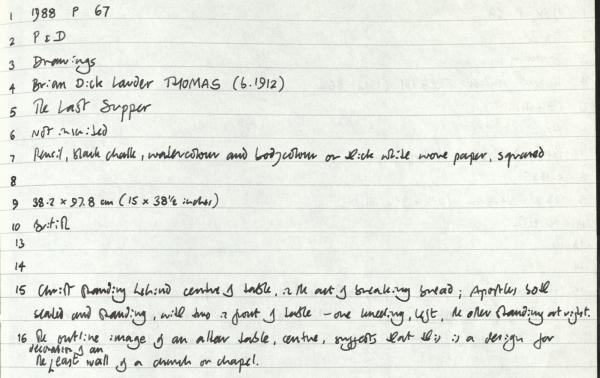 1 1988 P 67
2 P & D
3 Drawings
4 Brian Dick Lauder THOMAS (b.1912)
5 The Last Supper
6 Not inscribed
7 Pencil, black chalk, watercolour and bodycolour on thick white wove paper, squared
8
9 38.2 × 97.8 cm (15 × 38½ inches)
10 British
13
14
15 Christ standing behind centre of table, in the act of breaking bread; Apostles both
seated and standing, with two in front of table - one kneeling, left, the other standing at right.
16 The outline image of an altar table, centre, suggests that this is a design for
decoration of an
the east wall of a church or chapel.